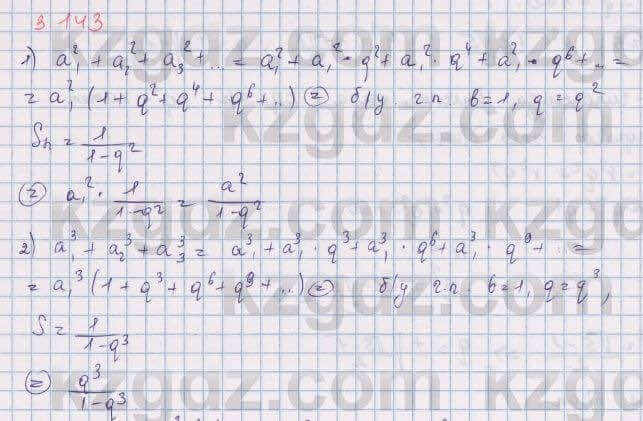 3.143
1) a₁² + a₂² + a₃² + ... = a₁² + a₁² · q² + a₁² · q⁴ + a₁² · q⁶ + ... =
= a₁² (1 + q² + q⁴ + q⁶ + ..) = б/у. г.п. b=1, q=q²
Sn = 1/(1-q²)
= a₁² · 1/(1-q²) = a²/(1-q²)
2) a₁³ + a₂³ + a₃³ = a₁³ + a₁³ · q³ + a₁³ · q⁶ + a₁³ · q⁹ + .. =
= a₁³ (1 + q³ + q⁶ + q⁹ + ...) = б/у г.п. b=1, q=q³,
S = 1/(1-q³)
= q³/(1-q³)
kzgdz.com